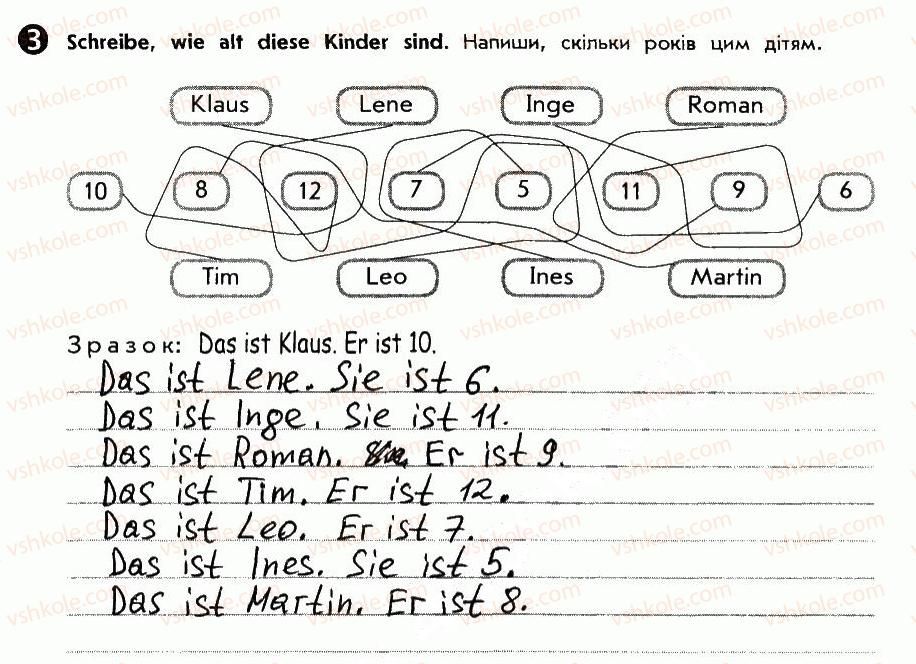 3 Schreibe, wie alt diese Kinder sind. Напиши, скільки років цим дітям.
Klaus Lene Inge Roman
10 8 12 7 5 11 9 6
Tim Leo Ines Martin
Зразок: Das ist Klaus. Er ist 10.
Das ist Lene. Sie ist 6.
Das ist Inge. Sie ist 11.
Das ist Roman. Er ist 9.
Das ist Tim. Er ist 12.
Das ist Leo. Er ist 7.
Das ist Ines. Sie ist 5.
Das ist Martin. Er ist 8.
vshkole.com